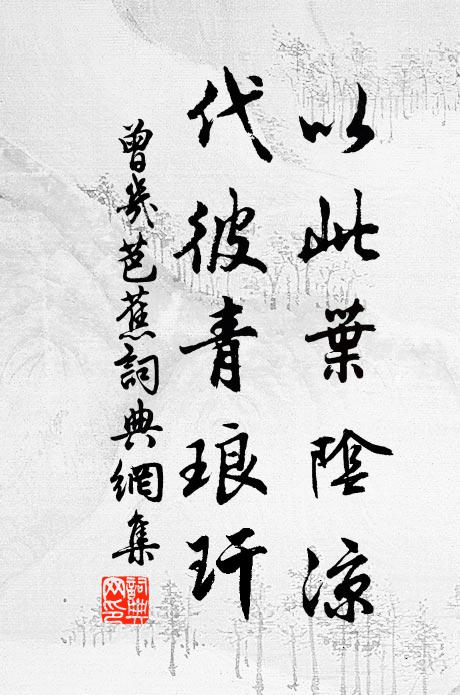 以此葉陰涼
代彼青琅玕
曾幾芭蕉詞典網集
詞典網印